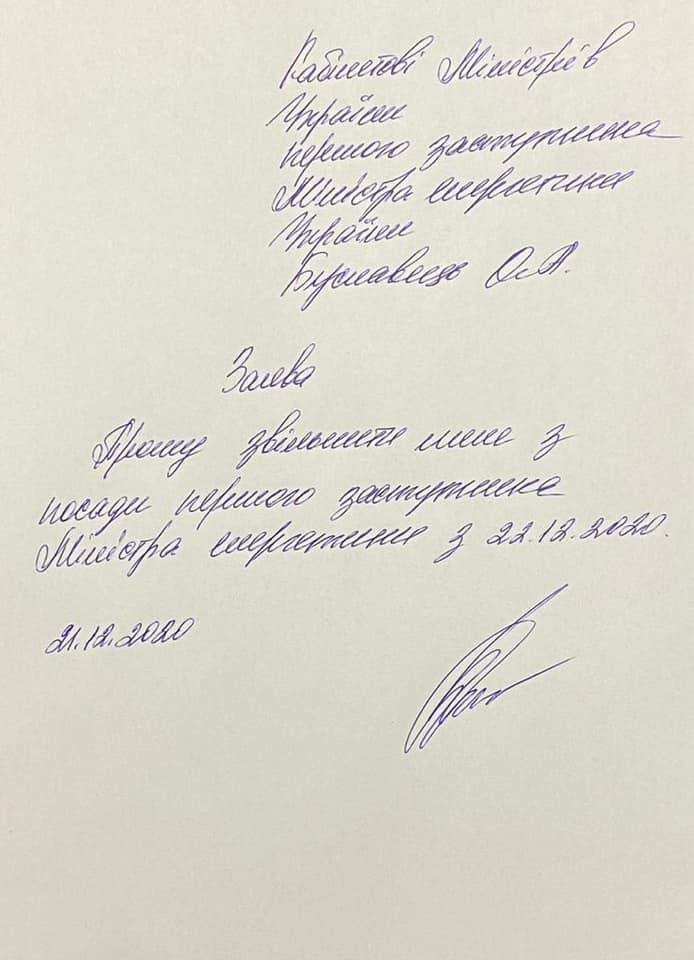 Кабінетові Міністрів
України
першого заступника
Міністра енергетики
України
Буславець О.А.
Заява
Прошу звільнити мене з
посади першого заступника
Міністра енергетики з 22.12.2020.
21.12.2020